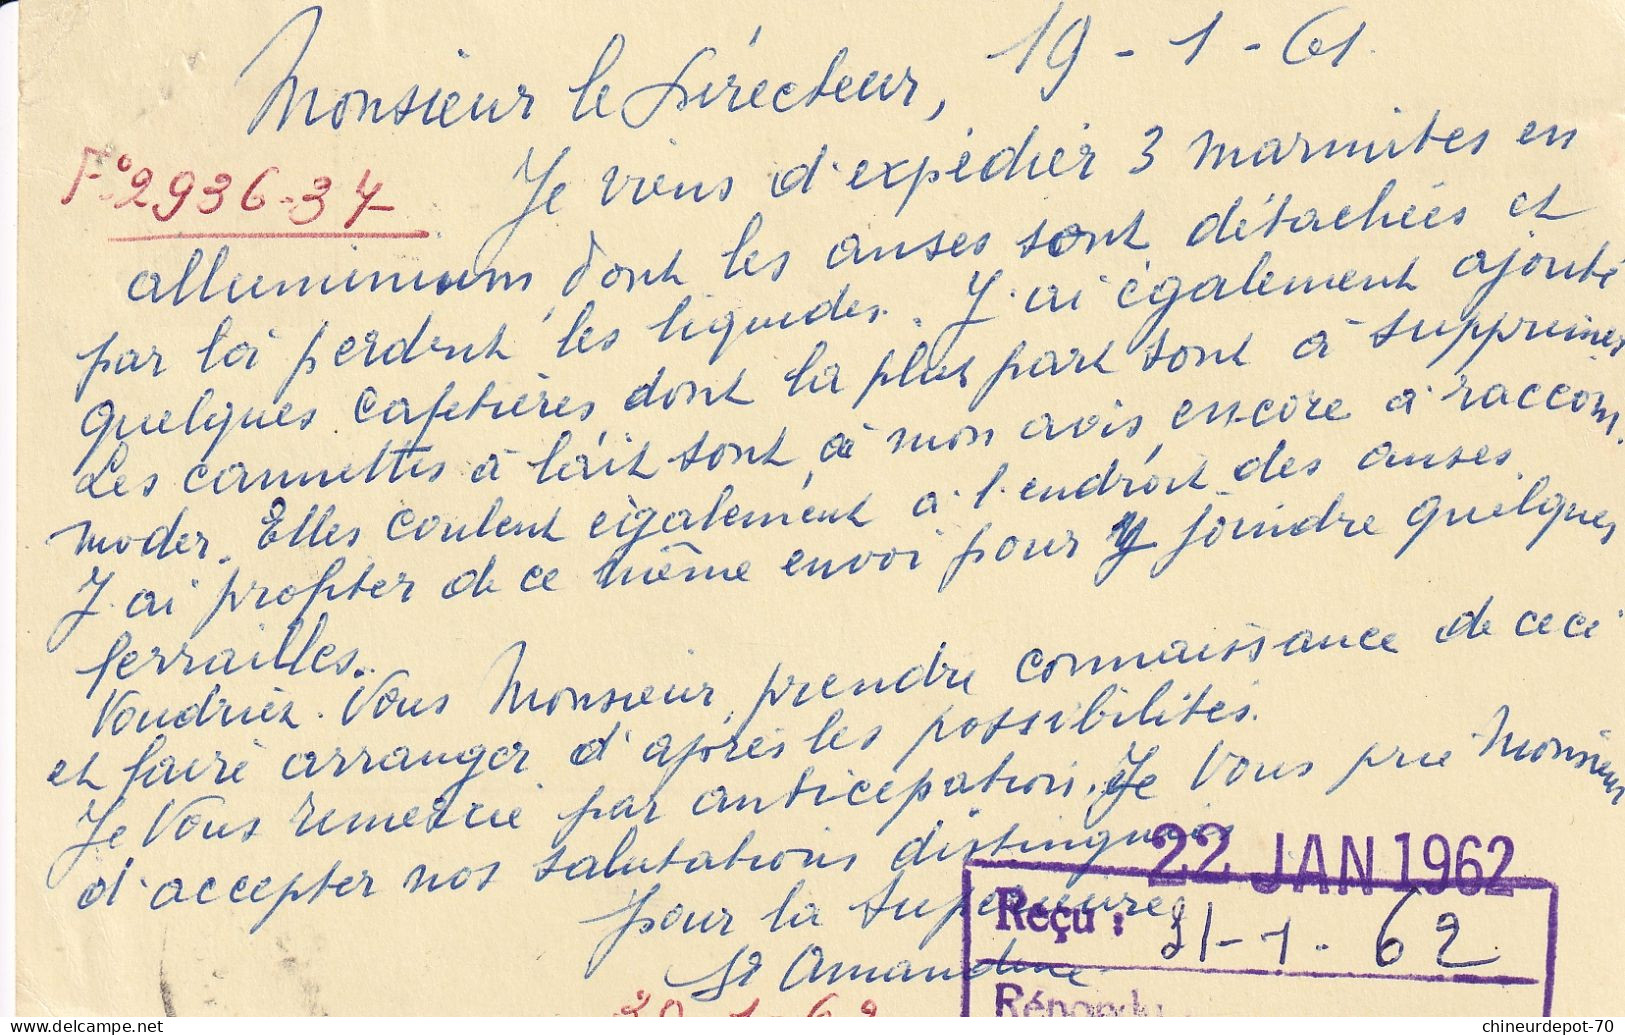 Monsieur le Dirécteur, 19-1-61.
F° 2936-34
Je viens d'expédier 3 marmites en
alluminium dont les anses sont détachées et
par loi perdent les liquides. J'ai également ajouté
quelques cafetières dont la plus part sont à supprimer
Les cannettes à lait sont à mon avis encore à raccom.
moder. Elles coulent eigalement à l'endroit des anses.
J'ai profiter de ce même envoi pour y joindre quelques
ferrailles.
Voudriez-Vous Monsieur, prendre connaissance de ceci
et faire arranger d'après les possibilités.
Je Vous remercie par anticepation. Je Vous prie Monsieur
d'accepter nos salutations distinguées
22 JAN 1962
pour la Supérieure
Reçu : 31-1-62
Sr Amandine
Répondu
30-1-62
chineurdepot-70